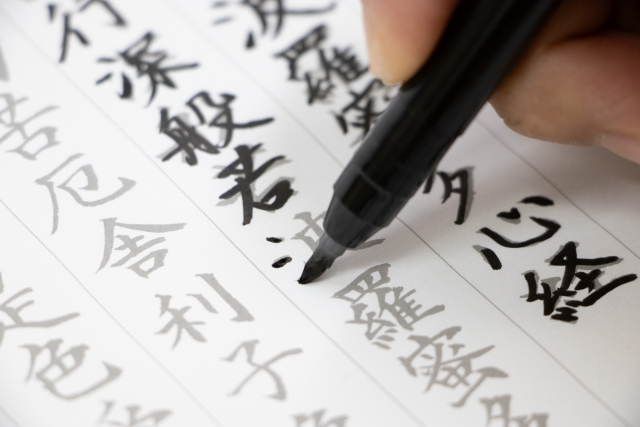 波羅蜜多心経
行深般若波羅蜜多
苦厄舎利子
是色